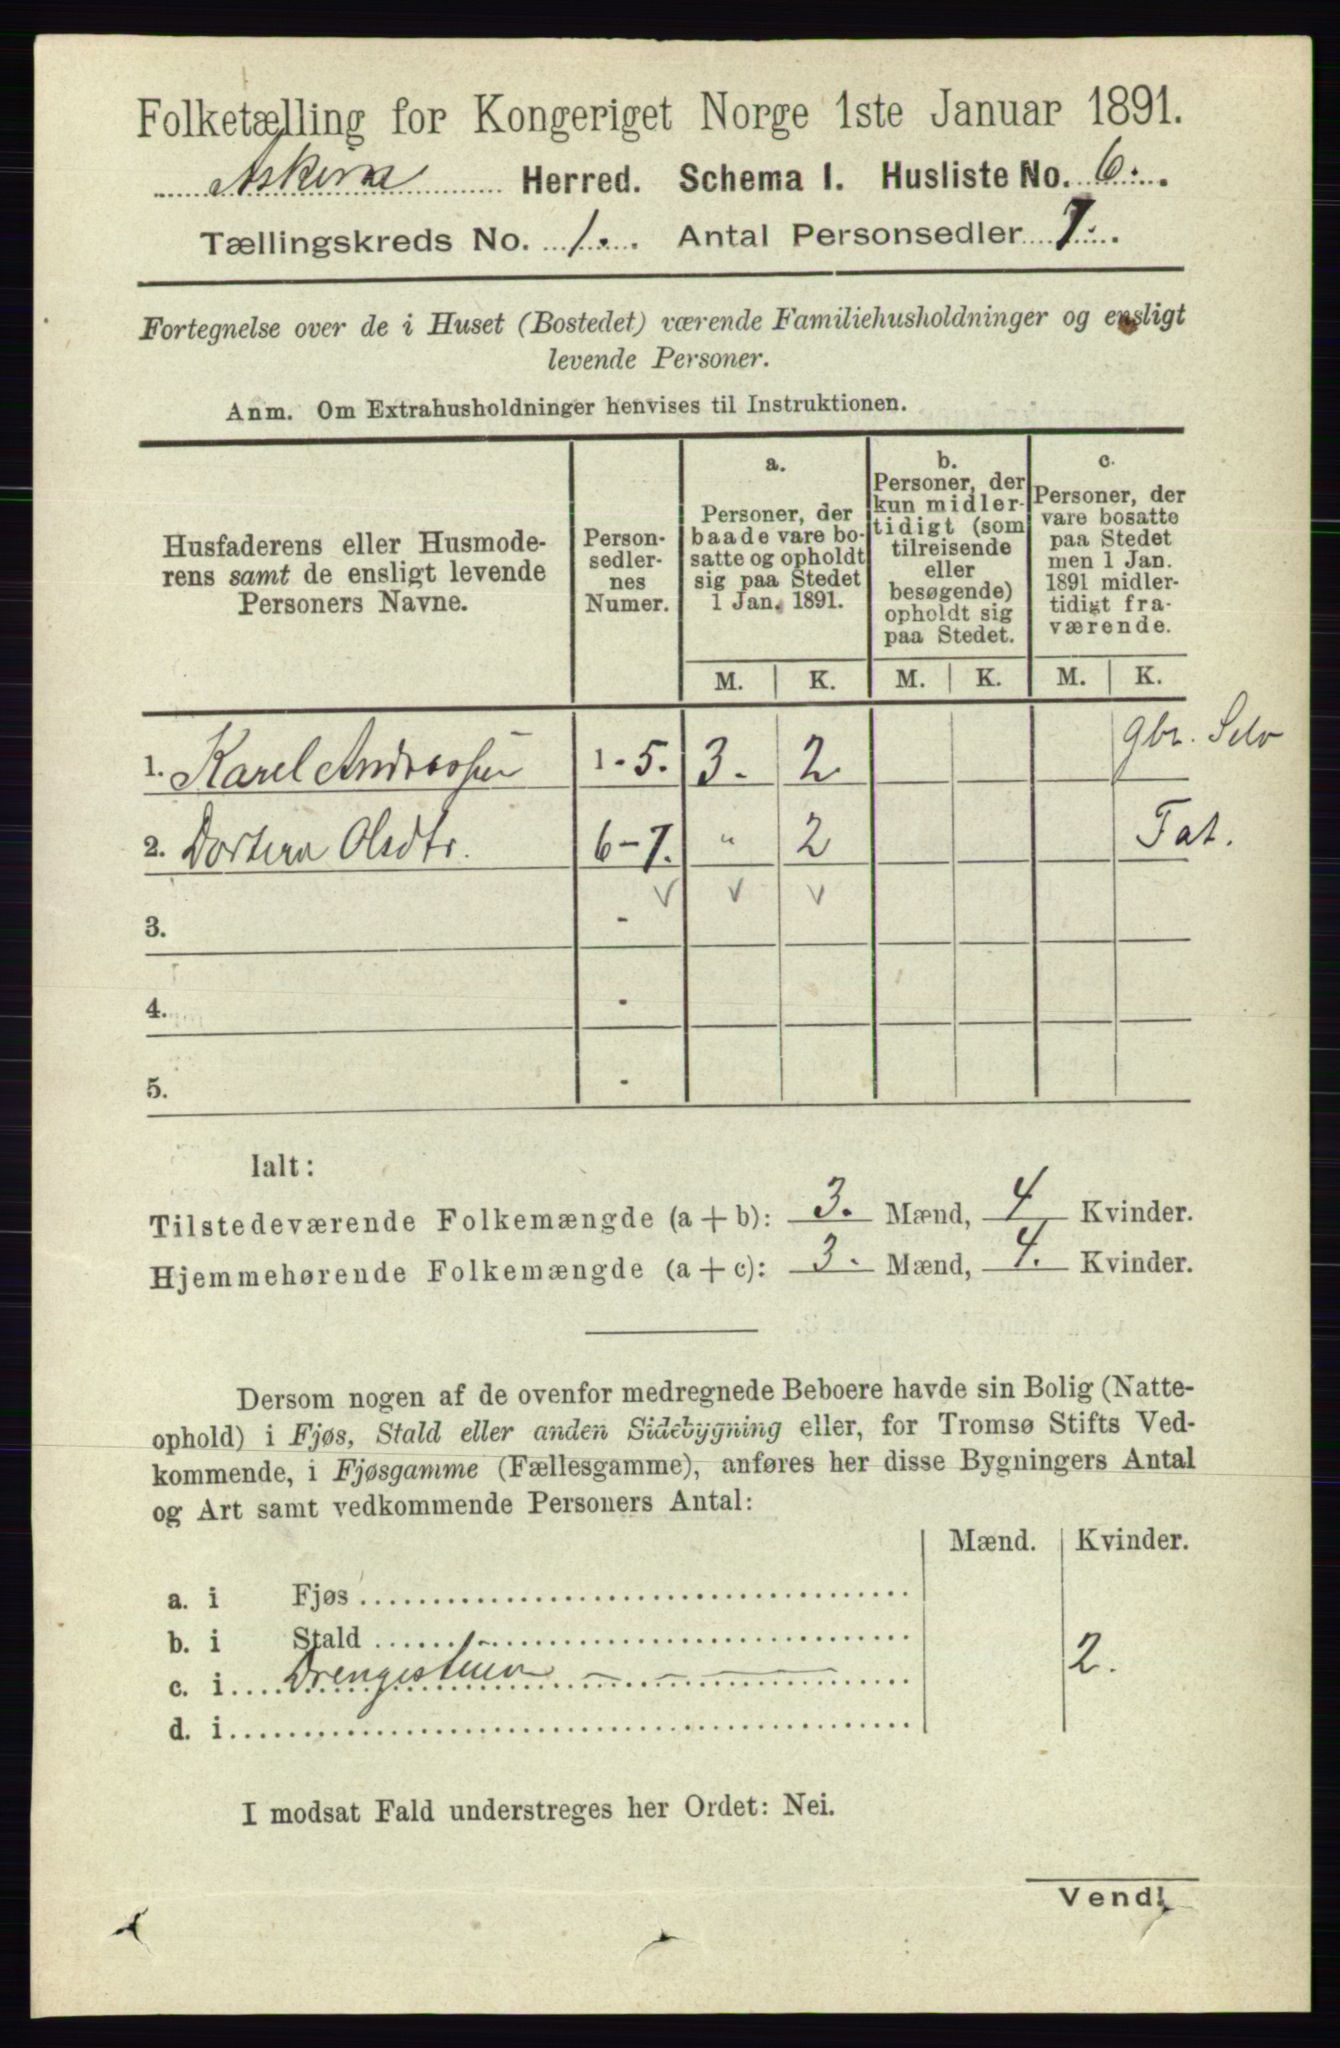 Folketælling for Kongeriget Norge 1ste Januar 1891.
Askim Herred. Schema I. Husliste No. 6.
Tællingskreds No. 1. Antal Personsedler 7.
Fortegnelse over de i Huset (Bostedet) værende Familiehusholdninger og ensligt
levende Personer.
Anm. Om Extrahusholdninger henvises til Instruktionen.
Husfaderens eller Husmode-
rens samt de ensligt levende
Personers Navne.
Person-
sedler-
nes
Numer.
a.
Personer, der
baade vare bo-
satte og opholdt
sig paa Stedet
1 Jan. 1891.
b.
Personer, der
kun midler-
tidigt (som
tilreisende
eller
besøgende)
opholdt sig
paa Stedet.
c.
Personer, der
vare bosatte
paa Stedet
men 1 Jan.
1891 midler-
tidigt fra-
værende.
M. K. M. K. M. K.
1. Karel Andreassen 1-5. 3. 2 gbr. Selv
2. Dortea Olsdtr. 6-7. " 2 Fat.
3. -
4. -
5. -
Ialt:
Tilstedeværende Folkemængde (a + b): 3. Mænd, 4 Kvinder.
Hjemmehørende Folkemængde (a + c): 3. Mænd, 4. Kvinder.
Dersom nogen af de ovenfor medregnede Beboere havde sin Bolig (Natte-
ophold) i Fjøs, Stald eller anden Sidebygning eller, for Tromsø Stifts Ved-
kommende, i Fjøsgamme (Fællesgamme), anføres her disse Bygningers Antal
og Art samt vedkommende Personers Antal:
Mænd. Kvinder.
a. i Fjøs
b. i Stald
c. i Drengestuen 2.
d. i
I modsat Fald understreges her Ordet: Nei.
Vend!